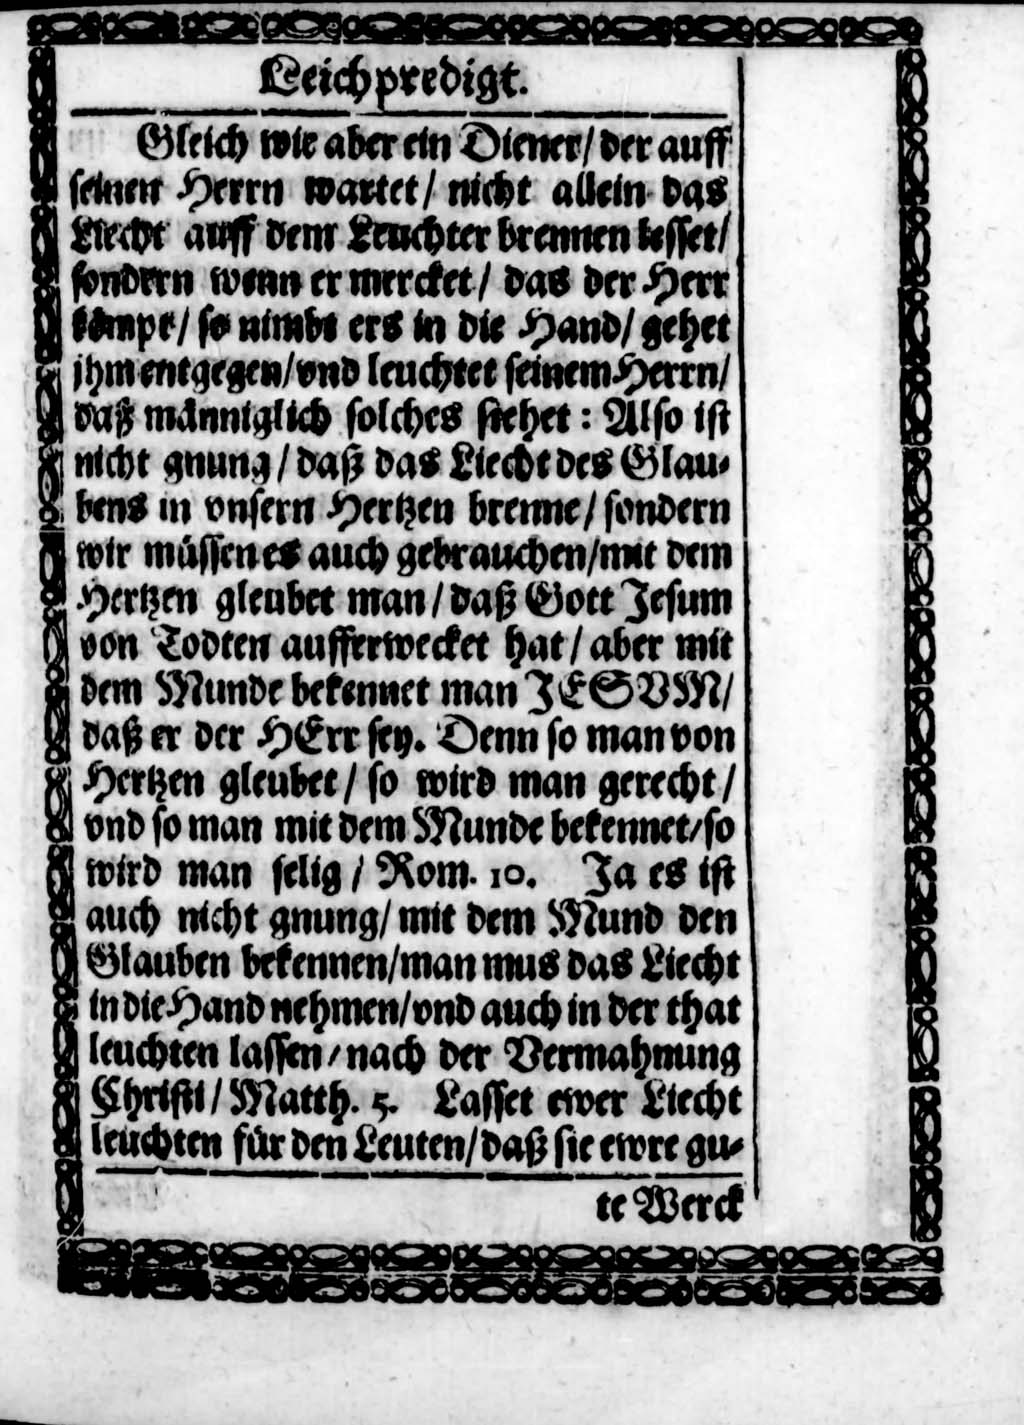 Leichpredigt.
Gleich wie aber ein Diener/ der auff
seinen Herrn wartet/ nicht allein das
Liecht auff dem Leuchter brennen lesset/
sondern wenn er mercket/ das der Herr
kömpt/ so nimbt ers in die Hand/ gehet
jhm entgegen/ vnd leuchtet seinem Herrn/
daß männiglich solches siehet: Also ist
nicht gnung/ daß das Liecht des Glau-
bens in vnsern Hertzen brenne/ sondern
wir müssen es auch gebrauchen/ mit dem
Hertzen gleubet man/ daß Gott Jesum
von Todten aufferwecket hat/ aber mit
dem Munde bekennet man JESVM/
daß er der HErr sey. Denn so man von
Hertzen gleubet/ so wird man gerecht/
vnd so man mit dem Munde bekennet/ so
wird man selig/ Rom. 10. Ja es ist
auch nicht gnung/ mit dem Mund den
Glauben bekennen/ man mus das Liecht
in die Hand nehmen/ vnd auch in der that
leuchten lassen/ nach der Vermahnung
Christi/ Matth. 5. Lasset ewer Liecht
leuchten für den Leuten/ daß sie ewre gu-
te Werck